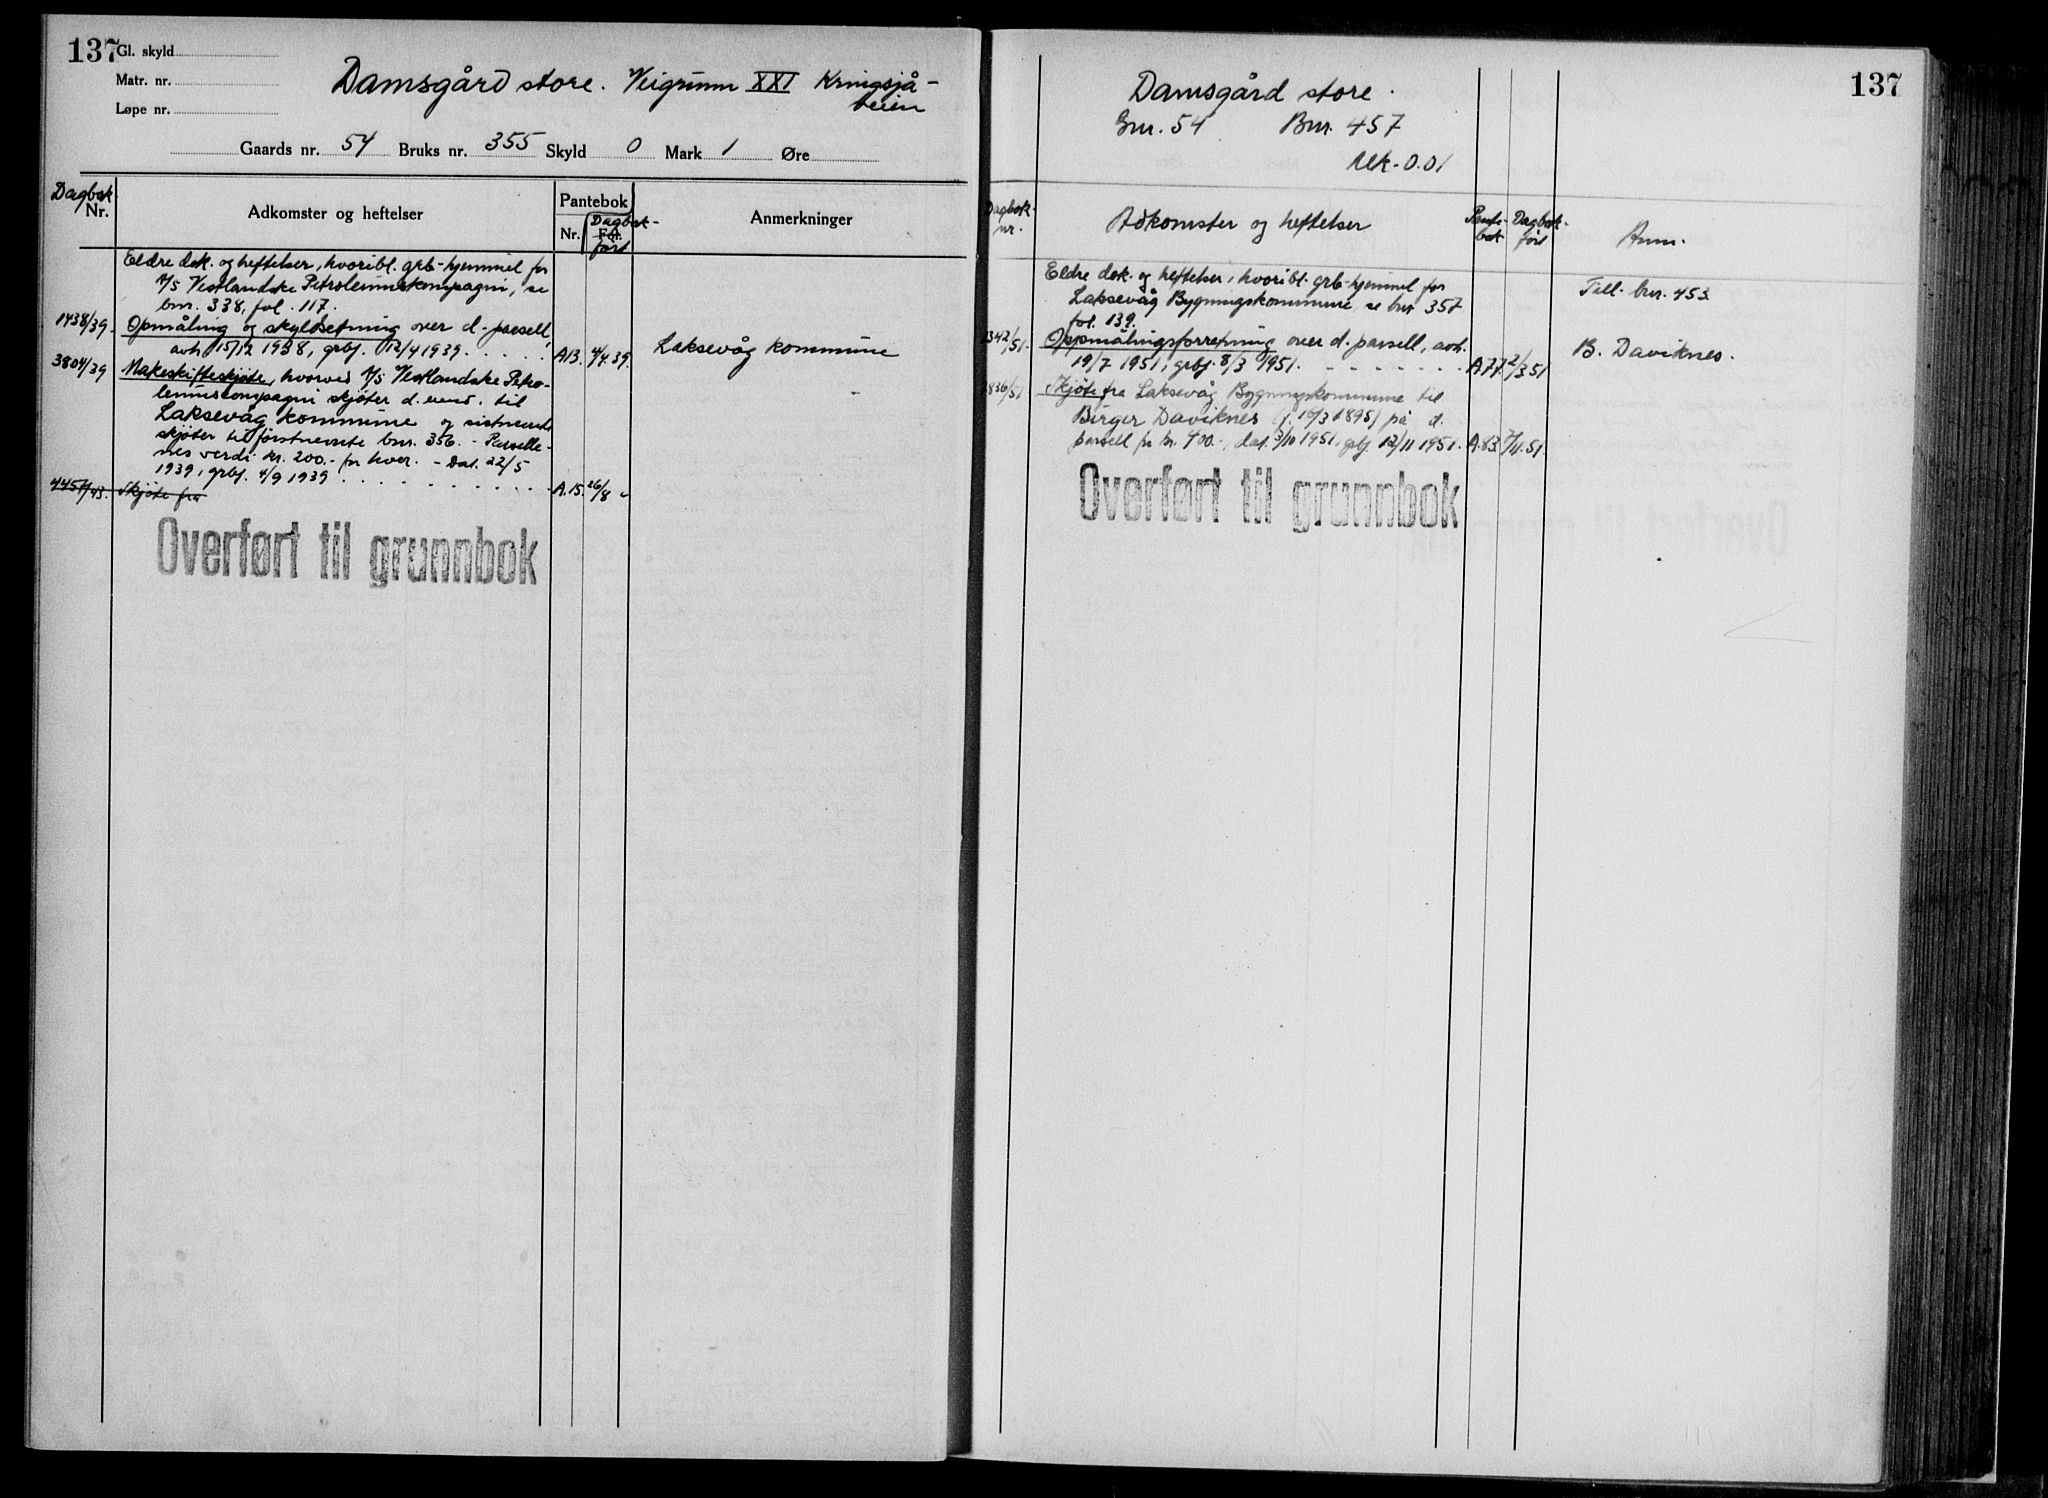 137
Gl. skyld
Matr. nr.
Løpe nr.
Damsgård store. Veigrunn XXI Kringsjå-
veien
Gaards nr. 54 Bruks nr. 355 Skyld 0 Mark 1 Øre
Dagbok
Nr.
Adkomster og heftelser
Pantebok
Nr.
Fol.
Dagbok-
ført
Anmerkninger
Eldre dok. og heftelser, hvoribl. grb-hjemmel for
A/S Vestlandske Petroleumskompagni, se
bnr. 338, fol. 117.
1438/39. Opmåling og skyldsetning over d. parsell,
avh. 15/12 1938, grbf. 12/4 1939. A13. 4/4 39. Laksevåg kommune
3804/39 Makeskifteskjøte, hvorved A/S Vestlandske Petro-
leumskompagni skjøter d. eiend. til
Laksevåg kommune og sistnevnte
skjøter til førstnevnte bnr. 356. - Parselle-
nes verdi kr. 200.- for hver. - Dat. 22/5
1939, grbf. 4/9 1939 A.15. 26/8 "
4457/43. Skjøte fra
Overført til grunnbok
137
Damsgård store.
Gnr. 54 Bnr. 457
Mk. 0.01
Dagbok-
nr.
Adkomster og heftelser
Pante-
bok
Dagbok-
ført
Anm.
Eldre dok. og heftelser, hvoribl. grb-hjemmel for
Laksevåg Bygningskommune se bnr 357
fol. 139.
Till. bnr. 453.
1342/51. Oppmålingsforretning over d. parsell, avh.
19/7 1951, grbf. 8/3 1951. A.77. 2/3.51 B. Daviknes.
Skjøte fra Laksevåg Bygningskommune til
Birger Daviknes (f. 16/3 1895) på d.
parsell for kr. 400.-, dat. 3/10 1951, grbf. 12/11 1951. A.83. 7/11.51.
Overført til grunnbok